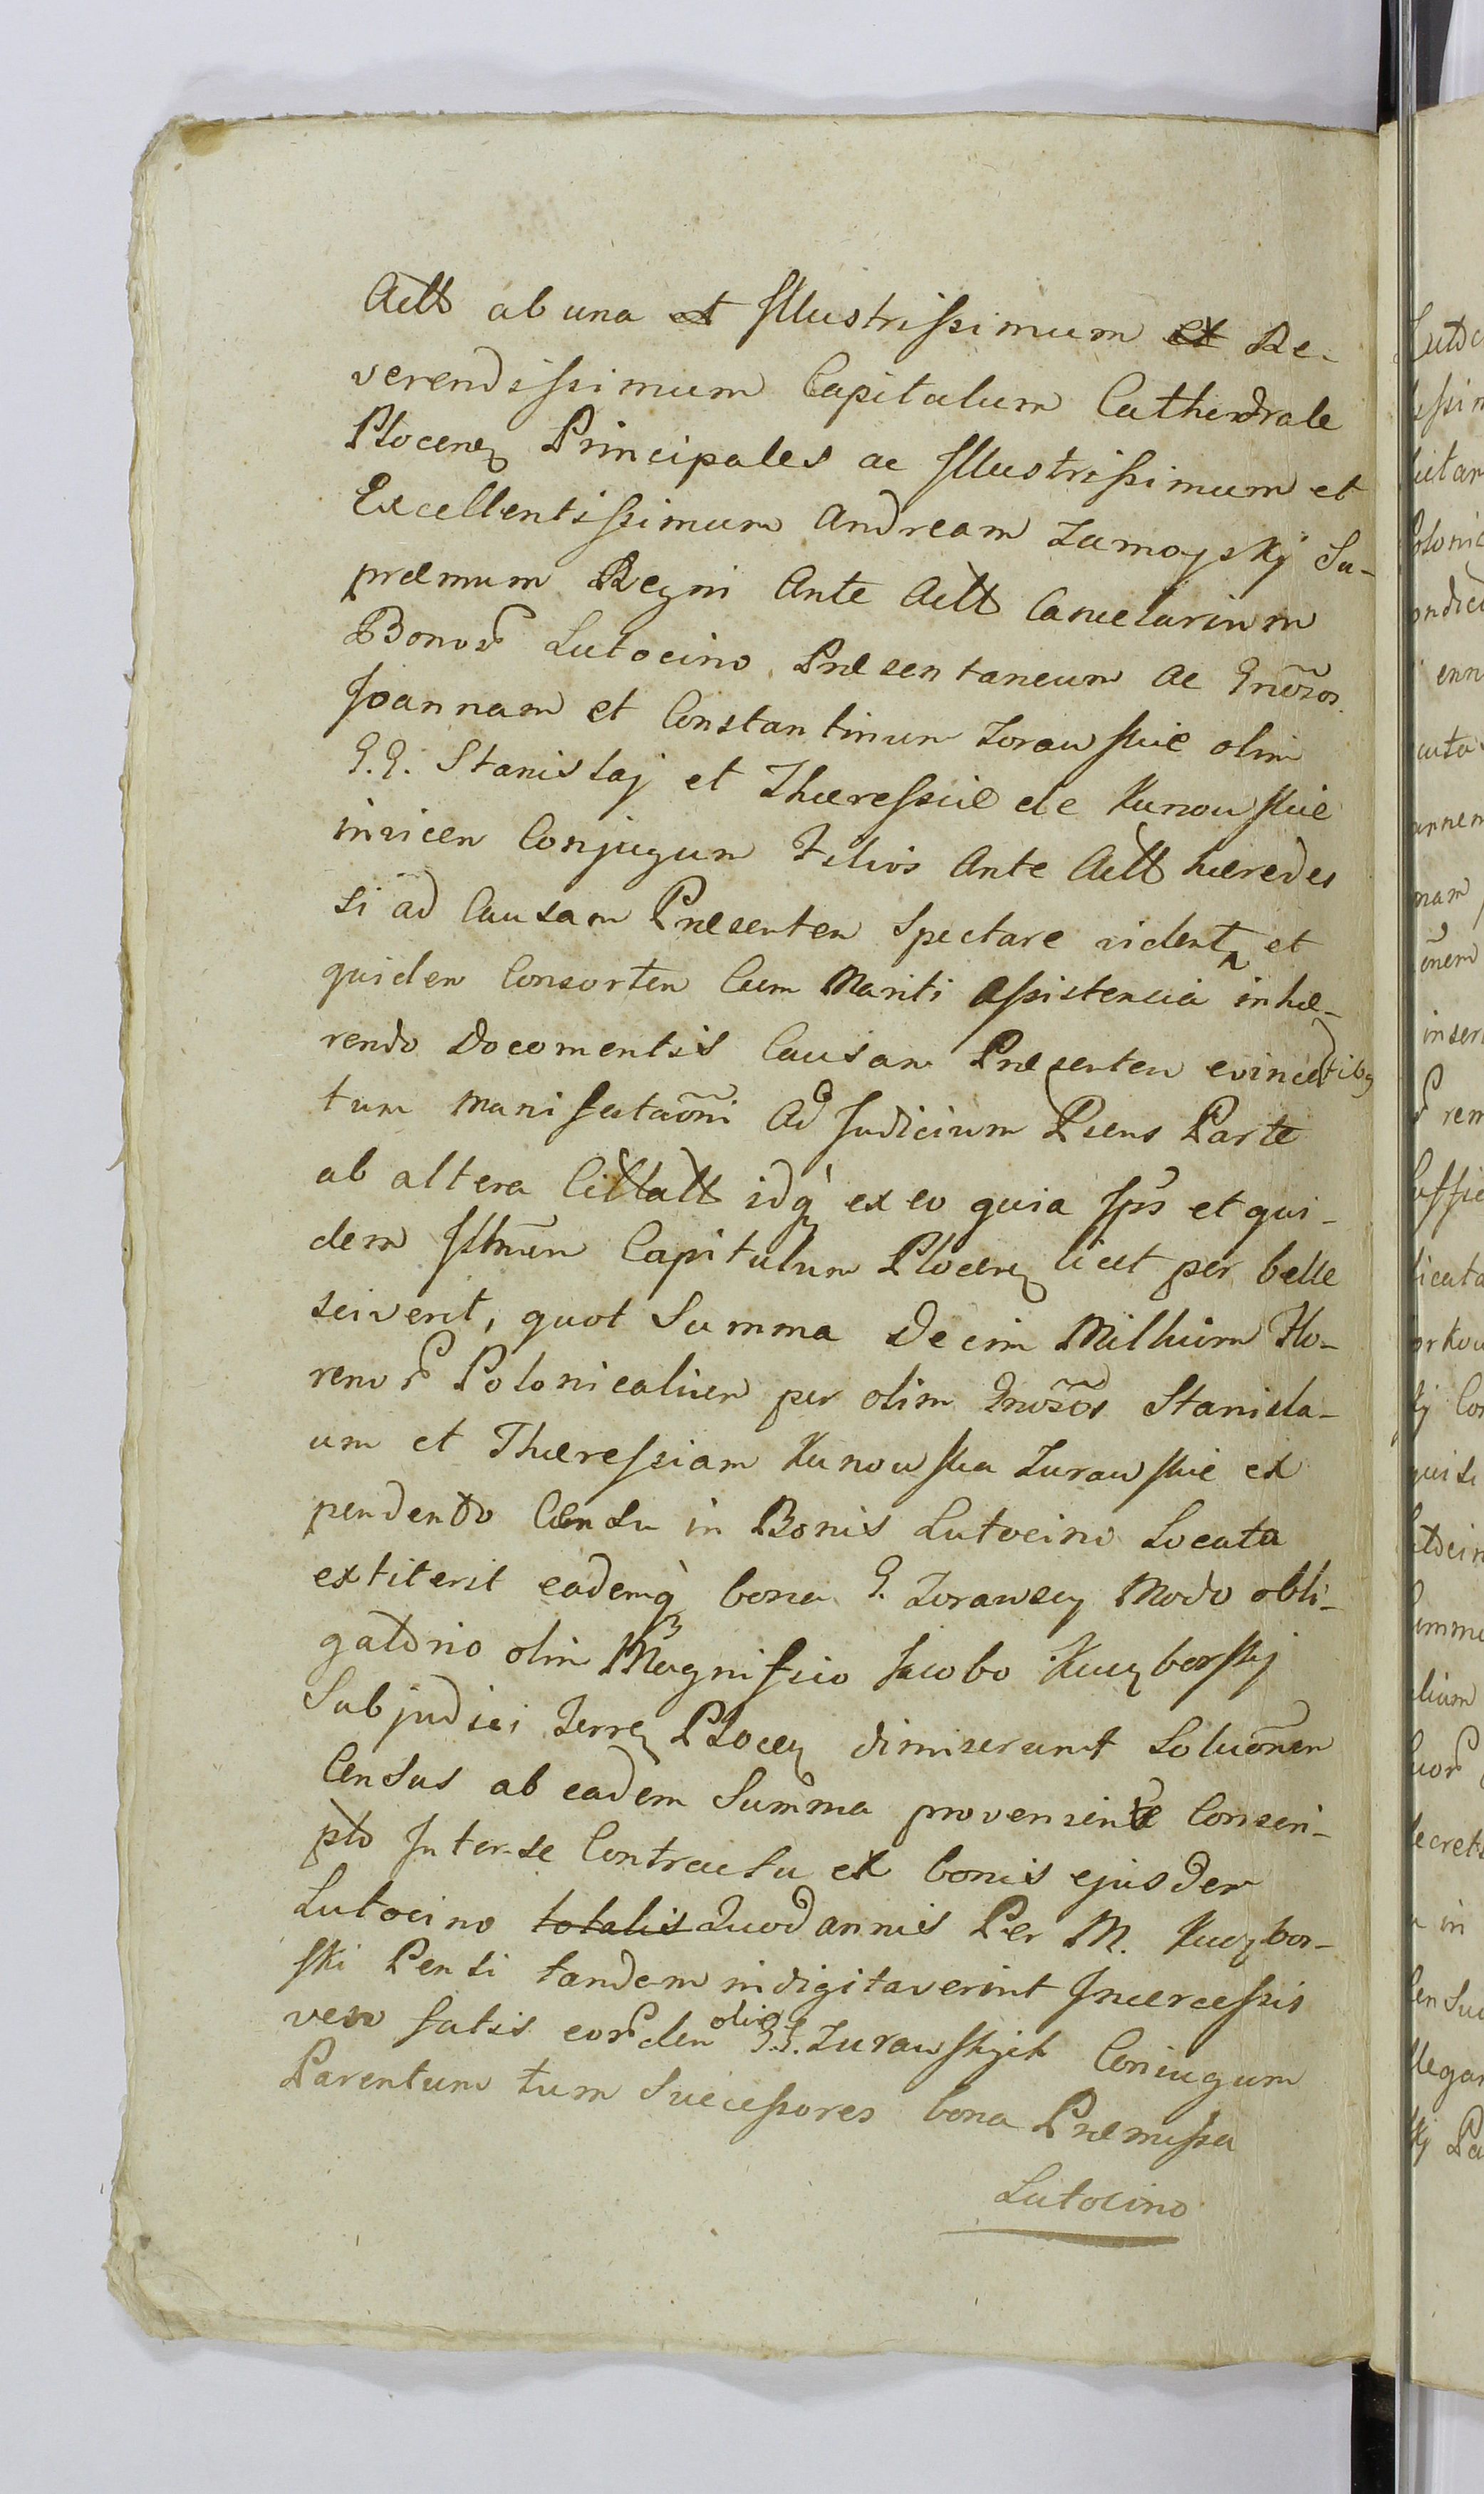 Actt ab una et Illustrissimum et Re-
verendissimum Capitulum Cathedrale
Plocenẹ Principales ac Illustrissimum et
Excellentissimum Andream Zamoyskÿ Su-
præmum Regni Ante Actt Cancelarium
Bonor Lutocino Præsentaneum ac Gnõsos
Joannam et Constantinum Zorawskie olim
G.G. Stanislaj et Thæressiæ de Kunowskie
invicem Conjugum Filios Ante Actt hæredes
si ad Causam Præsentem Spectare vident et
quidem Consortem Cum Mariti Assistencia inhæ-
rendo Documentis Causam Præsentem evincetibꝫ
tum Manifestaõni Ad Judicium Præns Parte
ab altera Cittatt idq̀ ex eo quia Ips et qui-
dem Illmũm Capitulum Plocenꝫ licet per belle
sciverit, quot Summa Decim Millium Flo-
renor Polonicalium per olim Gnõsos Stanisla-
um et Thæressiam Kunowska Zurawskie ex
pendendo Censu in Bonis Lutocino Locata
extiterit eademq̀ bona G. Zorawscy Modo obli-
gatorio olim Magnifico Jacobo Kuczborskj
Subjudici Terrꝫ Plocꝫ dimiserunt Soluõnem
Census ab eadem Summa proveniente Conscri-
pto Inter se Contractu ex bonis ejusdem
Lutocino totalis Quod annis Per M. Kuczbor-
ski Pensi tandem indigitaverint Incercessis
vero fatis eordem olim G.G. Zurawskich Coniugum
Parentum tum Successores bona Præmissa
Lutocino